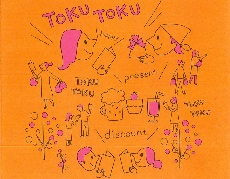 TOKU TOKU
present
TOKU
TOKU
TOKU
TOKU
discount